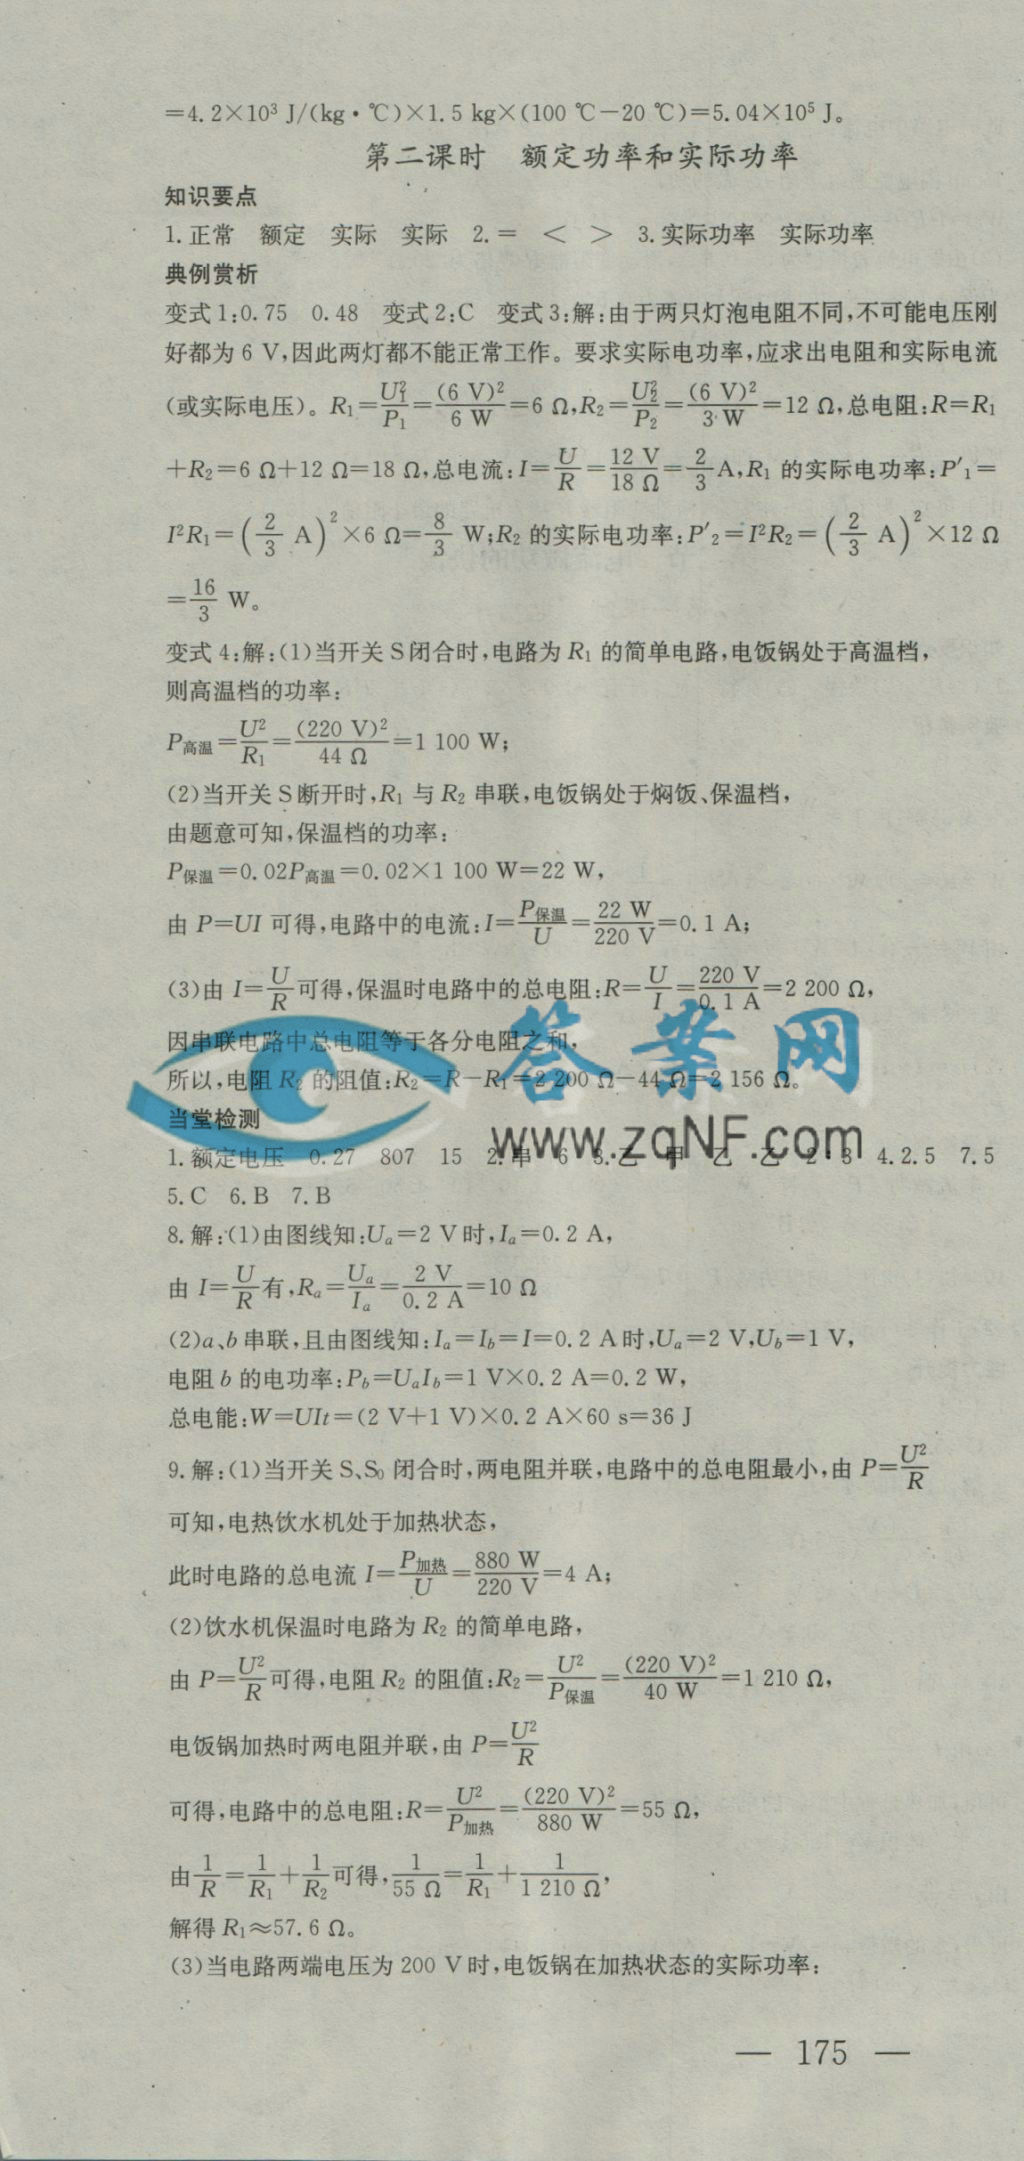 =4.2×10³ J/(kg·℃)×1.5 kg×(100 ℃-20 ℃)=5.04×10⁵ J。
第二课时 额定功率和实际功率
知识要点
1.正常 额定 实际 实际 2.= < > 3.实际功率 实际功率
典例赏析
变式1:0.75 0.48 变式2:C 变式3:解:由于两只灯泡电阻不同,不可能电压刚
好都为 6 V,因此两灯都不能正常工作。要求实际电功率,应求出电阻和实际电流
(或实际电压)。R₁=U₁²/P₁=(6 V)²/6 W=6 Ω,R₂=U₂²/P₂=(6 V)²/3 W=12 Ω,总电阻:R=R₁
+R₂=6 Ω+12 Ω=18 Ω,总电流:I=U/R=12 V/18 Ω=2/3 A,R₁ 的实际电功率:P′₁=
I²R₁=(2/3 A)²×6 Ω=8/3 W;R₂ 的实际电功率:P′₂=I²R₂=(2/3 A)²×12 Ω
=16/3 W。
变式4:解:(1)当开关S闭合时,电路为 R₁ 的简单电路,电饭锅处于高温档,
则高温档的功率:
P高温=U²/R₁=(220 V)²/44 Ω=1 100 W;
(2)当开关S断开时,R₁ 与 R₂ 串联,电饭锅处于焖饭、保温档,
由题意可知,保温档的功率:
P保温=0.02P高温=0.02×1 100 W=22 W,
由 P=UI 可得,电路中的电流:I=P保温/U=22 W/220 V=0.1 A;
(3)由 I=U/R可得,保温时电路中的总电阻:R=U/I=220 V/0.1 A=2 200 Ω,
因串联电路中总电阻等于各分电阻之和,
所以,电阻 R₂ 的阻值:R₂=R-R₁=2 200 Ω-44 Ω=2 156 Ω。
答案网
www.zqNF.com
当堂检测
1.额定电压 0.27 807 15 2.串 6 3.乙 甲 乙 乙 2:3 4.2.5 7.5
5.C 6.B 7.B
8.解:(1)由图线知:Uₐ=2 V时,Iₐ=0.2 A,
由 I=U/R有,Rₐ=Uₐ/Iₐ=2 V/0.2 A=10 Ω
(2)a、b串联,且由图线知:Iₐ=I_b=I=0.2 A时,Uₐ=2 V,U_b=1 V,
电阻b的电功率:P_b=UₐI_b=1 V×0.2 A=0.2 W,
总电能:W=UIt=(2 V+1 V)×0.2 A×60 s=36 J
9.解:(1)当开关S、S₀ 闭合时,两电阻并联,电路中的总电阻最小,由 P=U²/R
可知,电热饮水机处于加热状态,
此时电路的总电流 I=P加热/U=880 W/220 V=4 A;
(2)饮水机保温时电路为 R₂ 的简单电路,
由 P=U²/R可得,电阻 R₂ 的阻值:R₂=U²/P保温=(220 V)²/40 W=1 210 Ω,
电饭锅加热时两电阻并联,由 P=U²/R
可得,电路中的总电阻:R=U²/P加热=(220 V)²/880 W=55 Ω,
由1/R=1/R₁+1/R₂可得,1/55 Ω=1/R₁+1/1 210 Ω,
解得 R₁≈57.6 Ω。
(3)当电路两端电压为 200 V时,电饭锅在加热状态的实际功率:
— 175 —